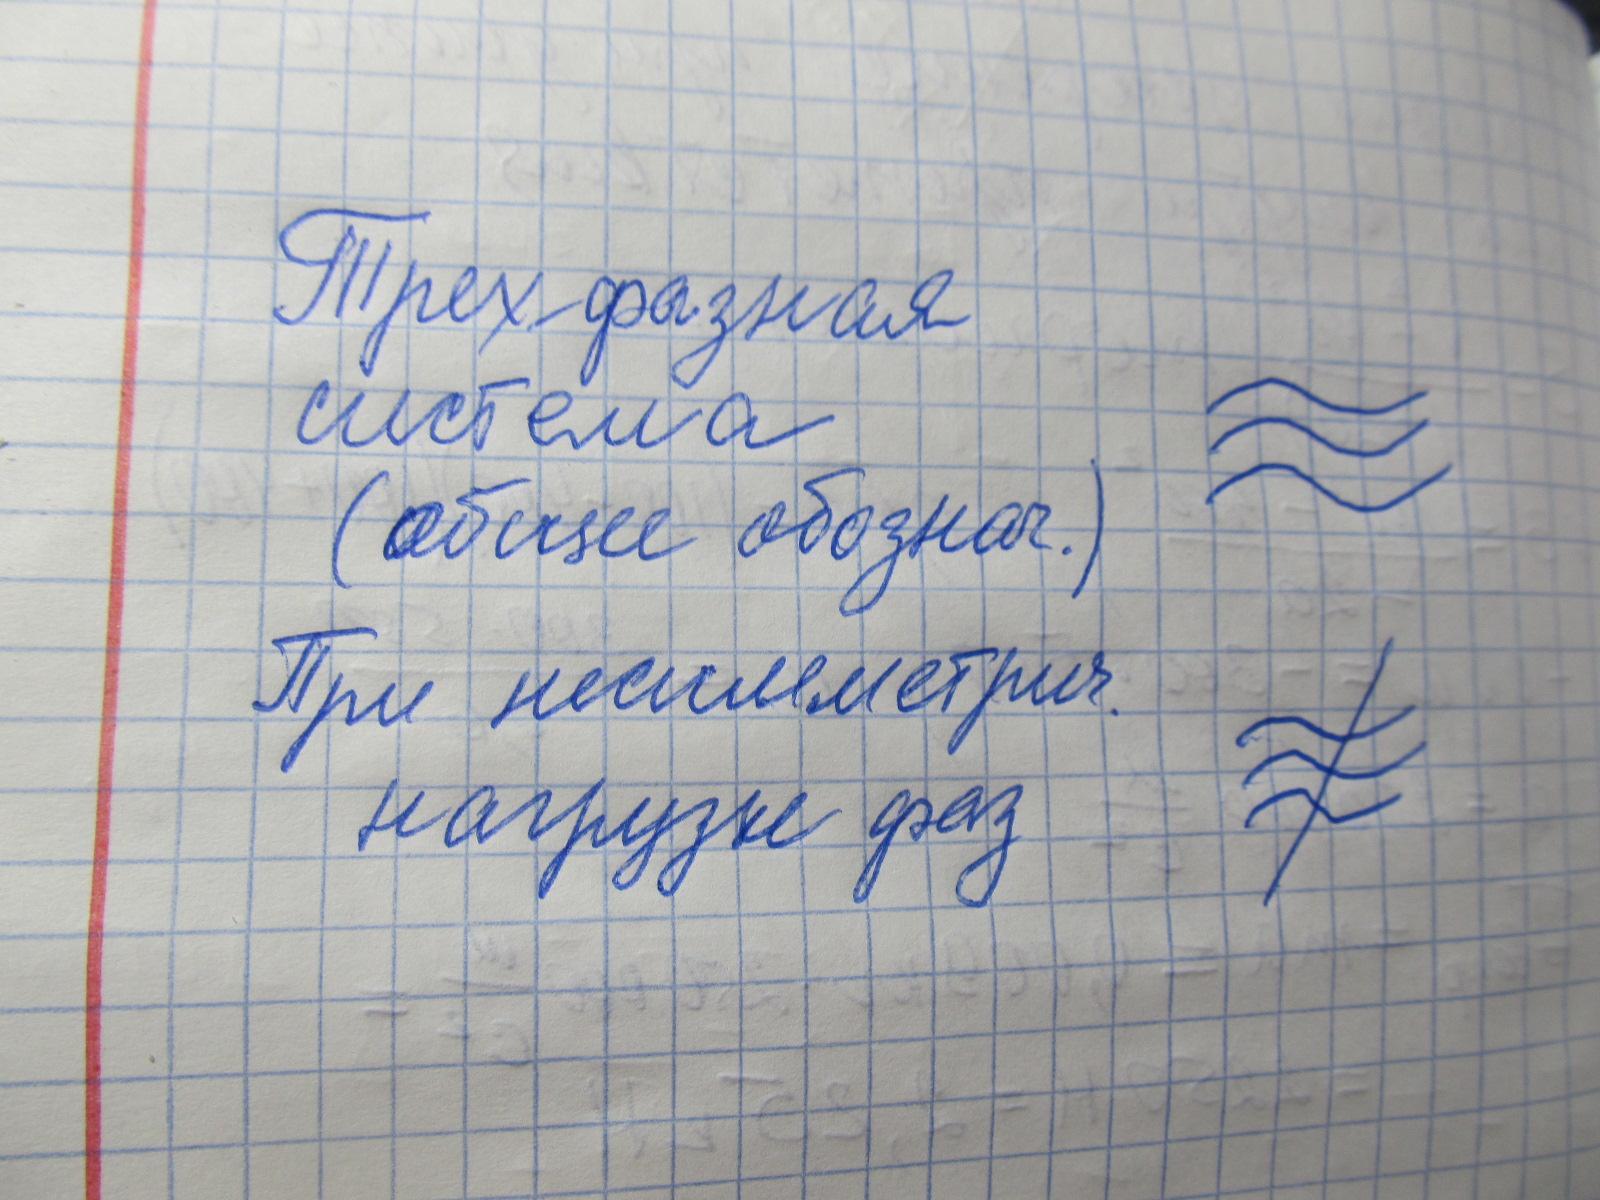 Трех-фазная
система
(общее обознач.)
При несимметрич.
нагрузке фаз